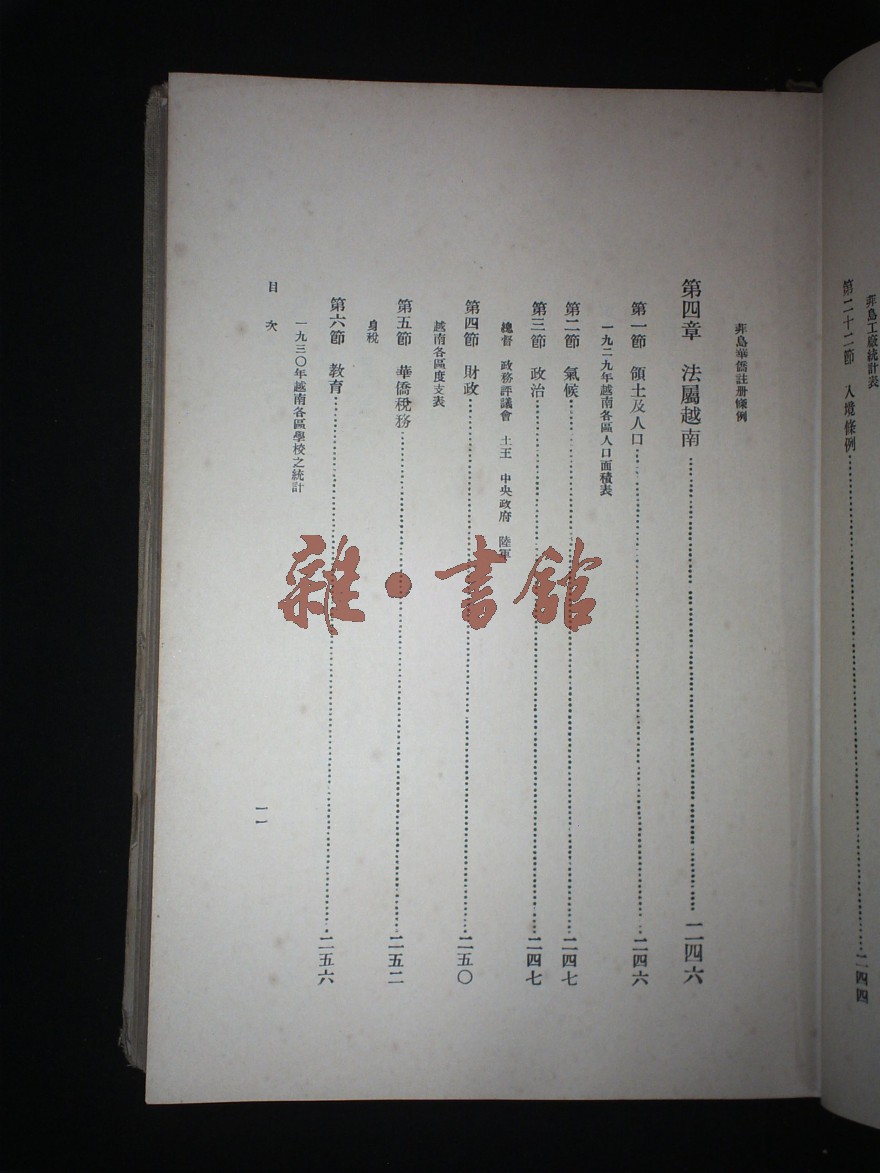 菲島工廠統計表
第二十二節 入境條例……二四四
菲島華僑註册條例
第四章 法屬越南……二四六
第一節 領土及人口……二四六
一九二九年越南各區人口面積表
第二節 氣候……二四七
第三節 政治……二四七
總督 政務評議會 土王 中央政府 陸軍
第四節 財政……二五〇
越南各區度支表
第五節 華僑稅務……二五二
身稅
第六節 教育……二五六
一九三〇年越南各區學校之統計
目次
一一
雜·書館